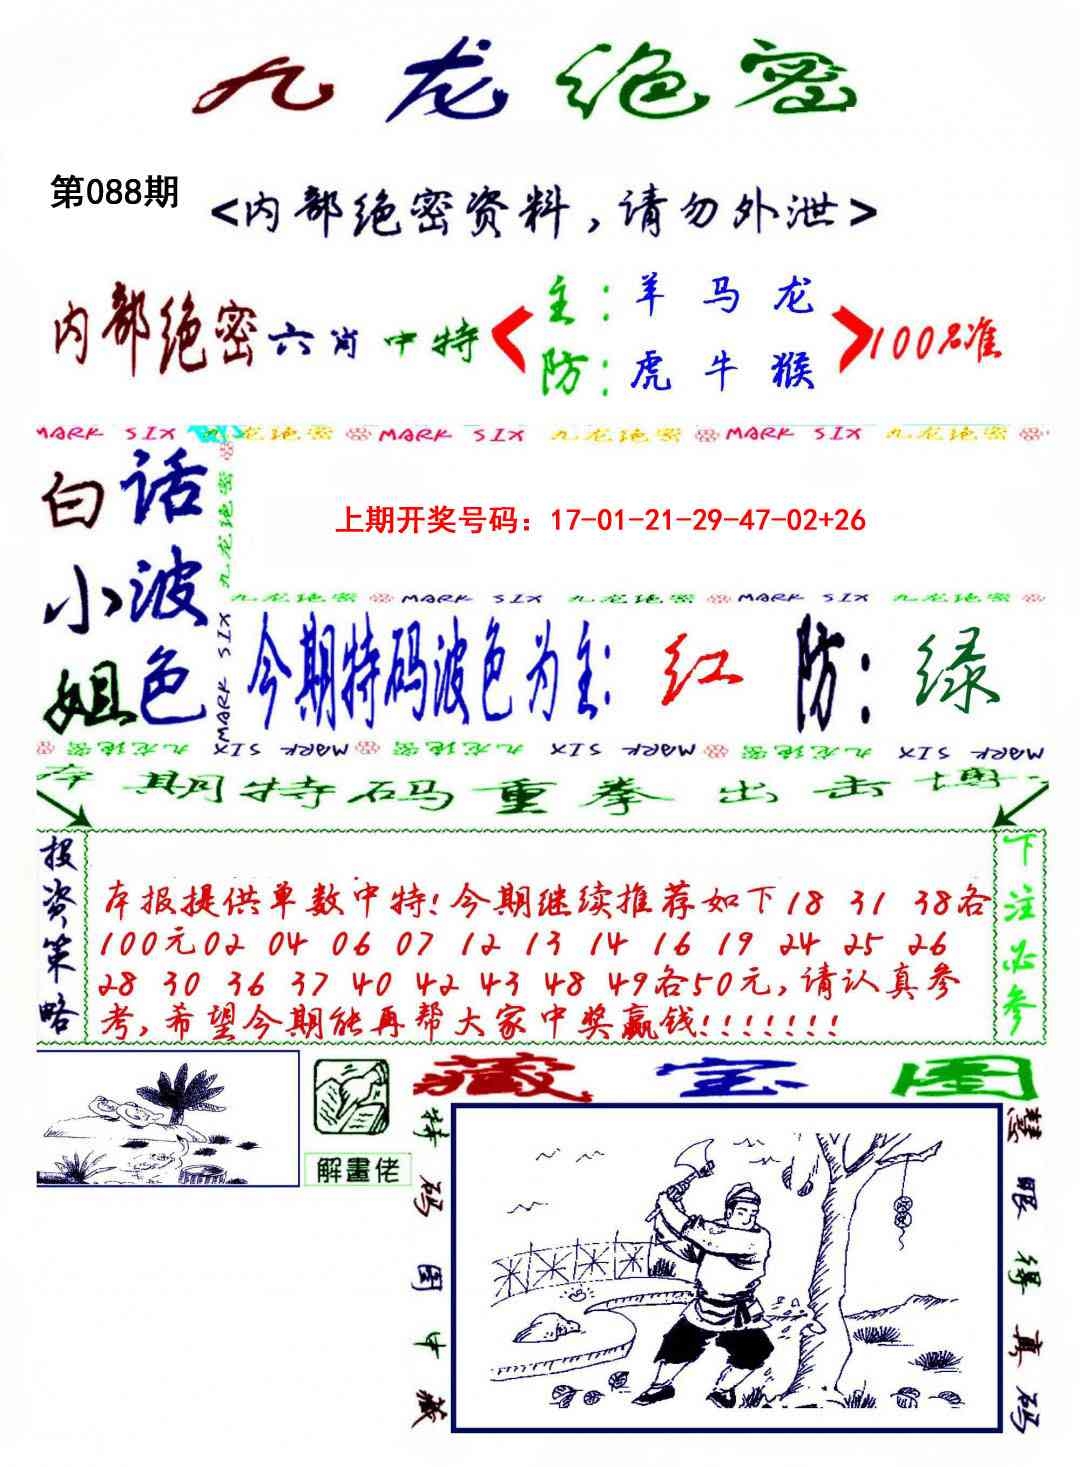 九龙绝密
第088期
<内部绝密资料,请勿外泄>
内部绝密六肖中特
主:羊 马 龙
防:虎 牛 猴
100%准
MARK SIX 九龙绝密 MARK SIX 九龙绝密 MARK SIX 九龙绝密
白话
小波
姐色
九龙绝密
MARK SIX
上期开奖号码：17-01-21-29-47-02+26
九龙绝密 MARK SIX 九龙绝密 MARK SIX 九龙绝密
今期特码波色为主:红 防:绿
九龙绝密 MARK SIX 九龙绝密 MARK SIX 九龙绝密 MARK SIX
本期特码重拳出击博
投资策略
本报提供单数中特!今期继续推荐如下18 31 38各
100元02 04 06 07 12 13 14 16 19 24 25 26
28 30 36 37 40 42 43 48 49各50元,请认真参
考,希望今期能再帮大家中奖赢钱!!!!!!!
下注必参
解畫佬
藏宝图
特码图中藏
慧眼得真码